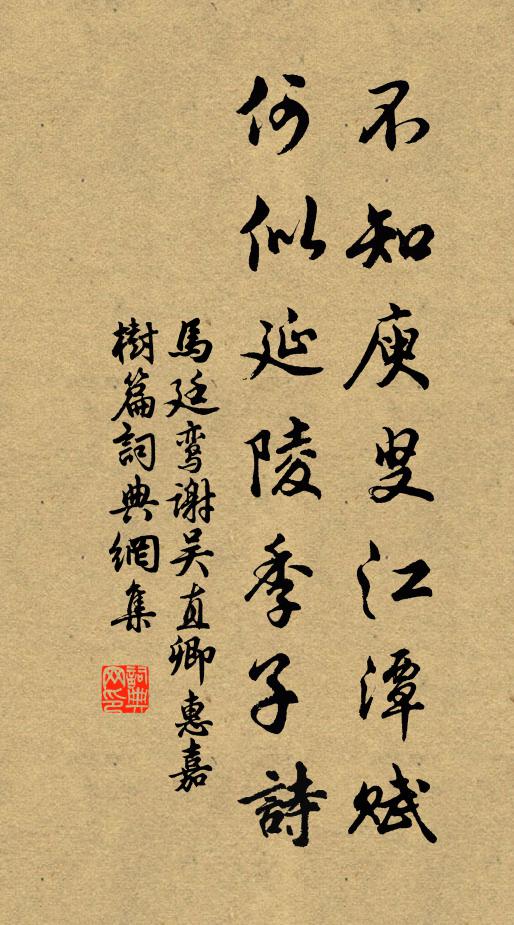 不知庾叟江潭赋
何似延陵季子詩
馬廷鸾谢吴直卿惠嘉
樹篇詞典網集
詞典网印